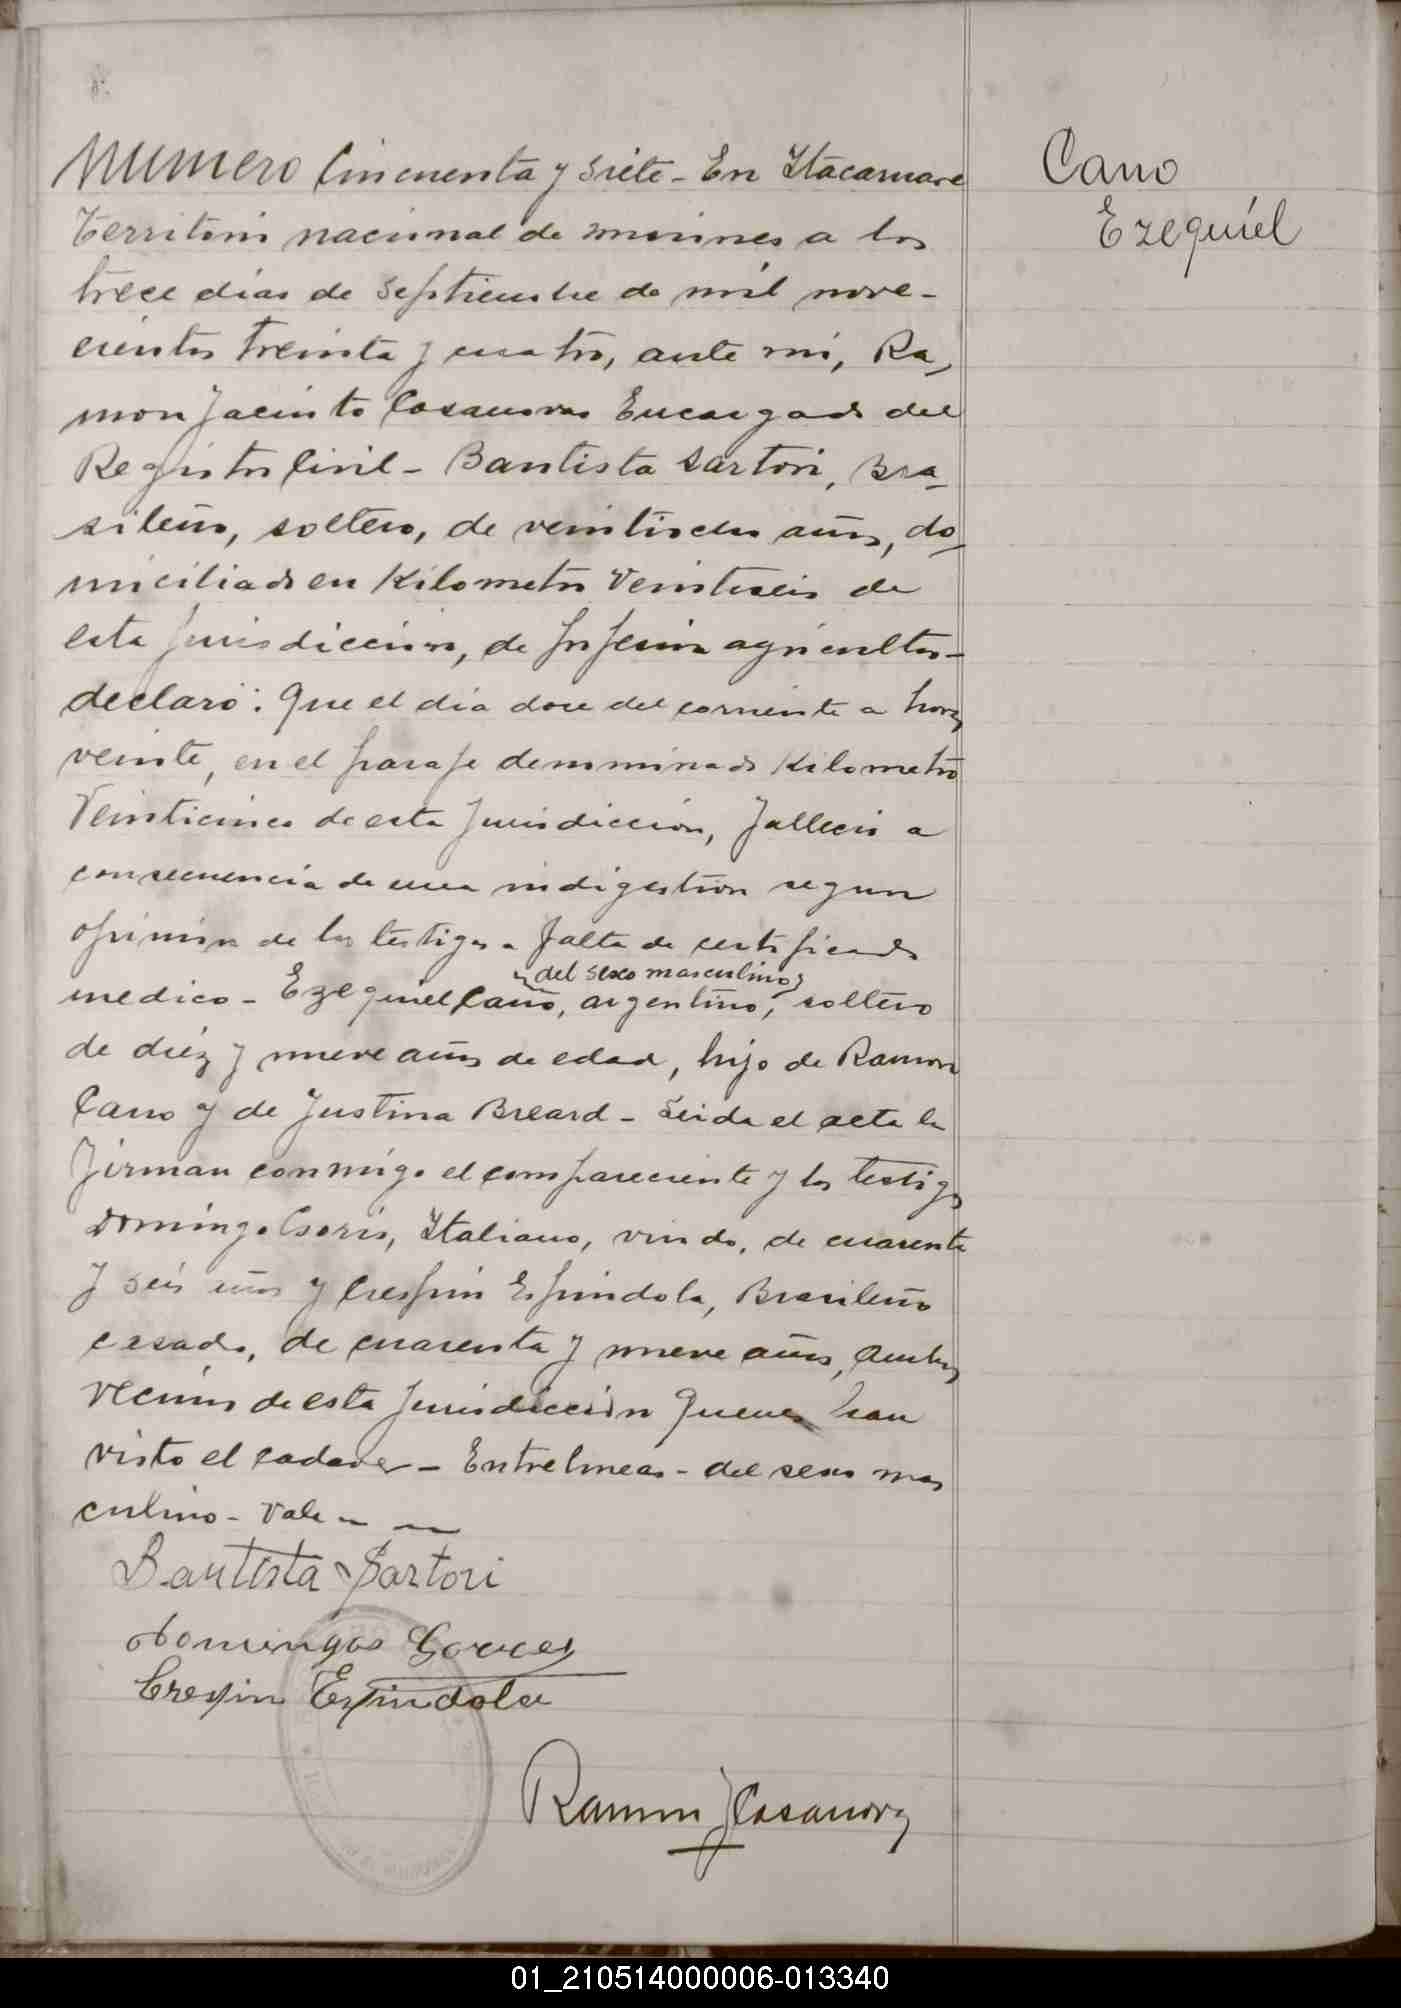 Numero Cincuenta y Siete - En Itacaruare
Territorio nacional de misiones a los
trece dias de Septiembre de mil nove-
cientos Treinta y cuatro, ante mi, Ra-
mon Jacinto Casanovas Encargado del
Registro Civil - Bautista Sartori, Bra-
sileño, soltero, de veintidos años, do-
miciliado en Kilometro Veintiseis de
esta Jurisdiccion, de profesion agricultor -
declaró: Que el dia doce del corriente a horas
veinte, en el paraje denominado Kilometro
Veinticinco de esta Jurisdiccion, Fallecio a
consecuencia de una indigestion segun
opinion de los testigos a falta de certificado
del sexo masculino
medico - Ezequiel Cano, argentino, soltero
de diéz y nueve años de edad, hijo de Ramon
Cano y de Justina Breard - Leida el acta la
Firman conmigo el compareciente y los testigos
Domingo, Italiano, viudo, de cuarenta
y seis años y Crespin Espindola, Brasileño
casado, de cuarenta y nueve años, ambos
vecinos de esta Jurisdiccion Quienes han
visto el cadaver - Entrelineas - del sexo mas
culino - Vale -
Bautista Sartori
Domingos
Crespin Espindola
Ramon J Casanova
Cano
Ezequiel
01_210514000006-013340